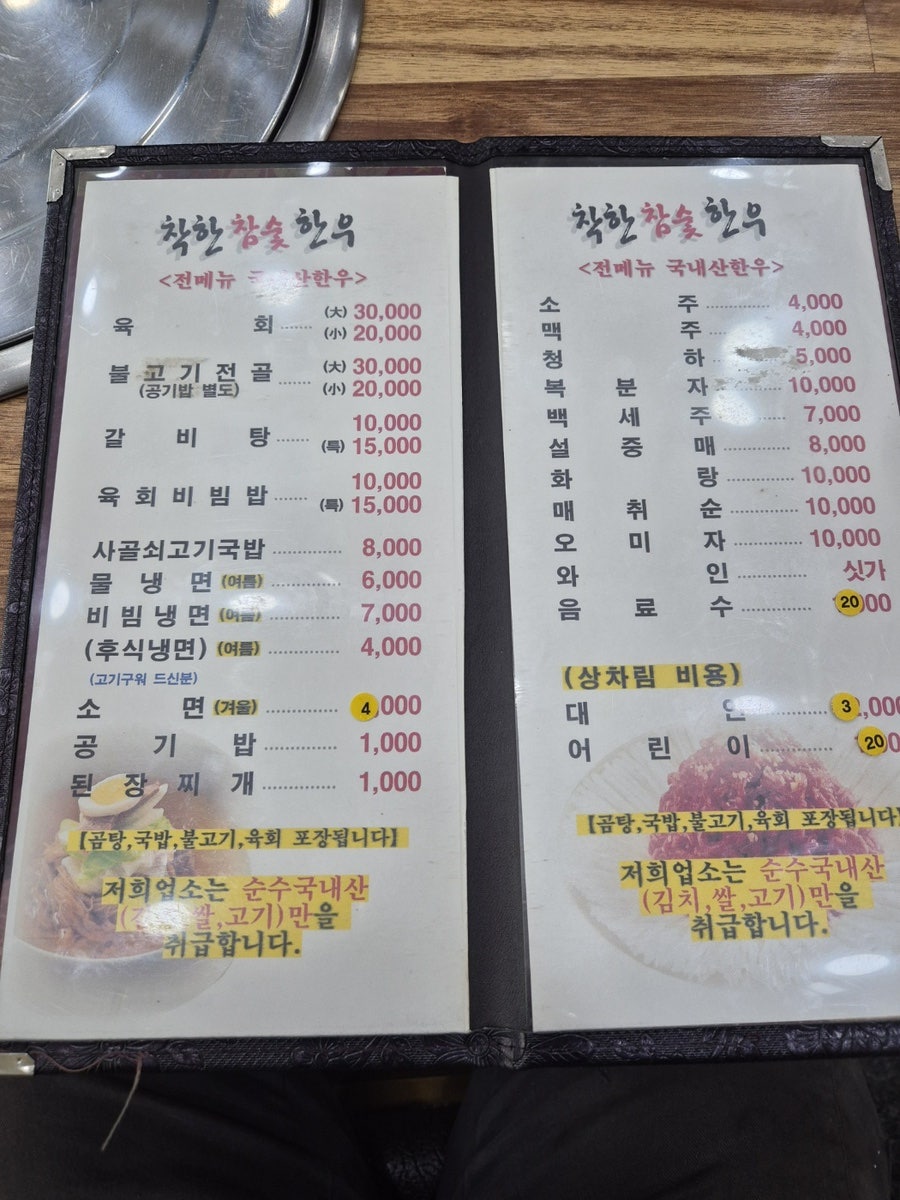 착한참숯한우
<전메뉴 국내산한우>
육 회 ...... (大) 30,000
(小) 20,000
불고기전골 ...... (大) 30,000
(공기밥 별도) (小) 20,000
갈 비 탕 ...... 10,000
(특) 15,000
육회비빔밥 ...... 10,000
(특) 15,000
사골쇠고기국밥 ...... 8,000
물 냉 면 (여름) ...... 6,000
비빔냉면 (여름) ...... 7,000
(후식냉면) (여름) ...... 4,000
(고기구워 드신분)
소 면 (겨울) ...... 4,000
공 기 밥 ...... 1,000
된 장 찌 개 ...... 1,000
【곰탕,국밥,불고기,육회 포장됩니다】
저희업소는 순수국내산
(김치,쌀,고기)만을
취급합니다.
착한참숯한우
<전메뉴 국내산한우>
소 주 ...... 4,000
맥 주 ...... 4,000
청 하 ...... 5,000
복 분 자 ...... 10,000
백 세 주 ...... 7,000
설 중 매 ...... 8,000
화 랑 ...... 10,000
매 취 순 ...... 10,000
오 미 자 ...... 10,000
와 인 ...... 싯가
음 료 수 ...... 2000
(상차림 비용)
대 인 ...... 3,000
어 린 이 ...... 20
【곰탕,국밥,불고기,육회 포장됩니다】
저희업소는 순수국내산
(김치,쌀,고기)만을
취급합니다.